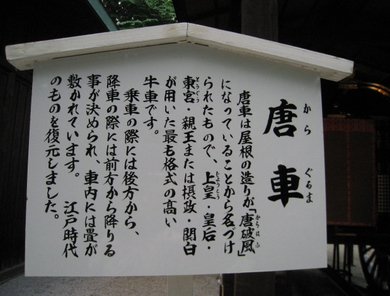 唐車
から ぐるま
唐車は屋根の造りが「唐破風」
からはふ
になっていることから名づけ
られたもので、上皇・皇后・
じょうこう
東宮・親王または摂政・関白
とうぐう
が用いた最も格式の高い
牛車です。
乗車の際には後方から、
降車の際には前方から降りる
事が決められ、車内には畳が
敷かれています。 江戸時代
のものを復元しました。